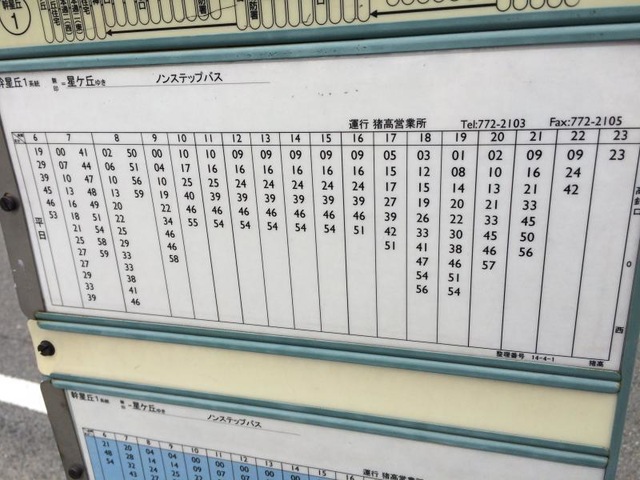 幹星丘
1
幹星丘1系統 無印 =星ケ丘ゆき ノンステップバス
運行 猪高営業所 Tel:772-2103 Fax:772-2105
6 7 8 9 10 11 12 13 14 15 16 17 18 19 20 21 22 23
19 00 41 02 50 00 10 10 09 09 09 09 09 05 03 01 02 09 09 23
29 07 44 06 51 04 17 16 16 16 16 16 15 15 12 08 10 16 24
39 10 47 10 56 10 25 25 24 24 24 24 24 17 15 14 13 21 42
45 13 48 13 59 19 40 39 39 39 39 39 39 27 19 20 21 33
46 16 49 20 22 46 46 46 46 46 46 46 39 26 22 33 45
53 18 51 22 34 55 54 54 54 54 54 51 42 33 30 45 50
21 54 25 46 51 41 38 46 56
25 58 29 46 47 46 57
27 59 33 58 54 51
27 33 56 54
29 38
33 41
39 46
平日
西
整理番号 14-4-1 猪高
幹星丘1系統 無印 =星ケ丘ゆき ノンステップバス
運行 猪高営業所
6 7 8 9 10 11 12 13 14 15 16